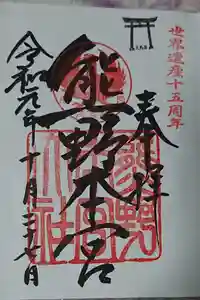 世界遺産十五周年
奉拝
熊野本宮
令和元年十月二十七日